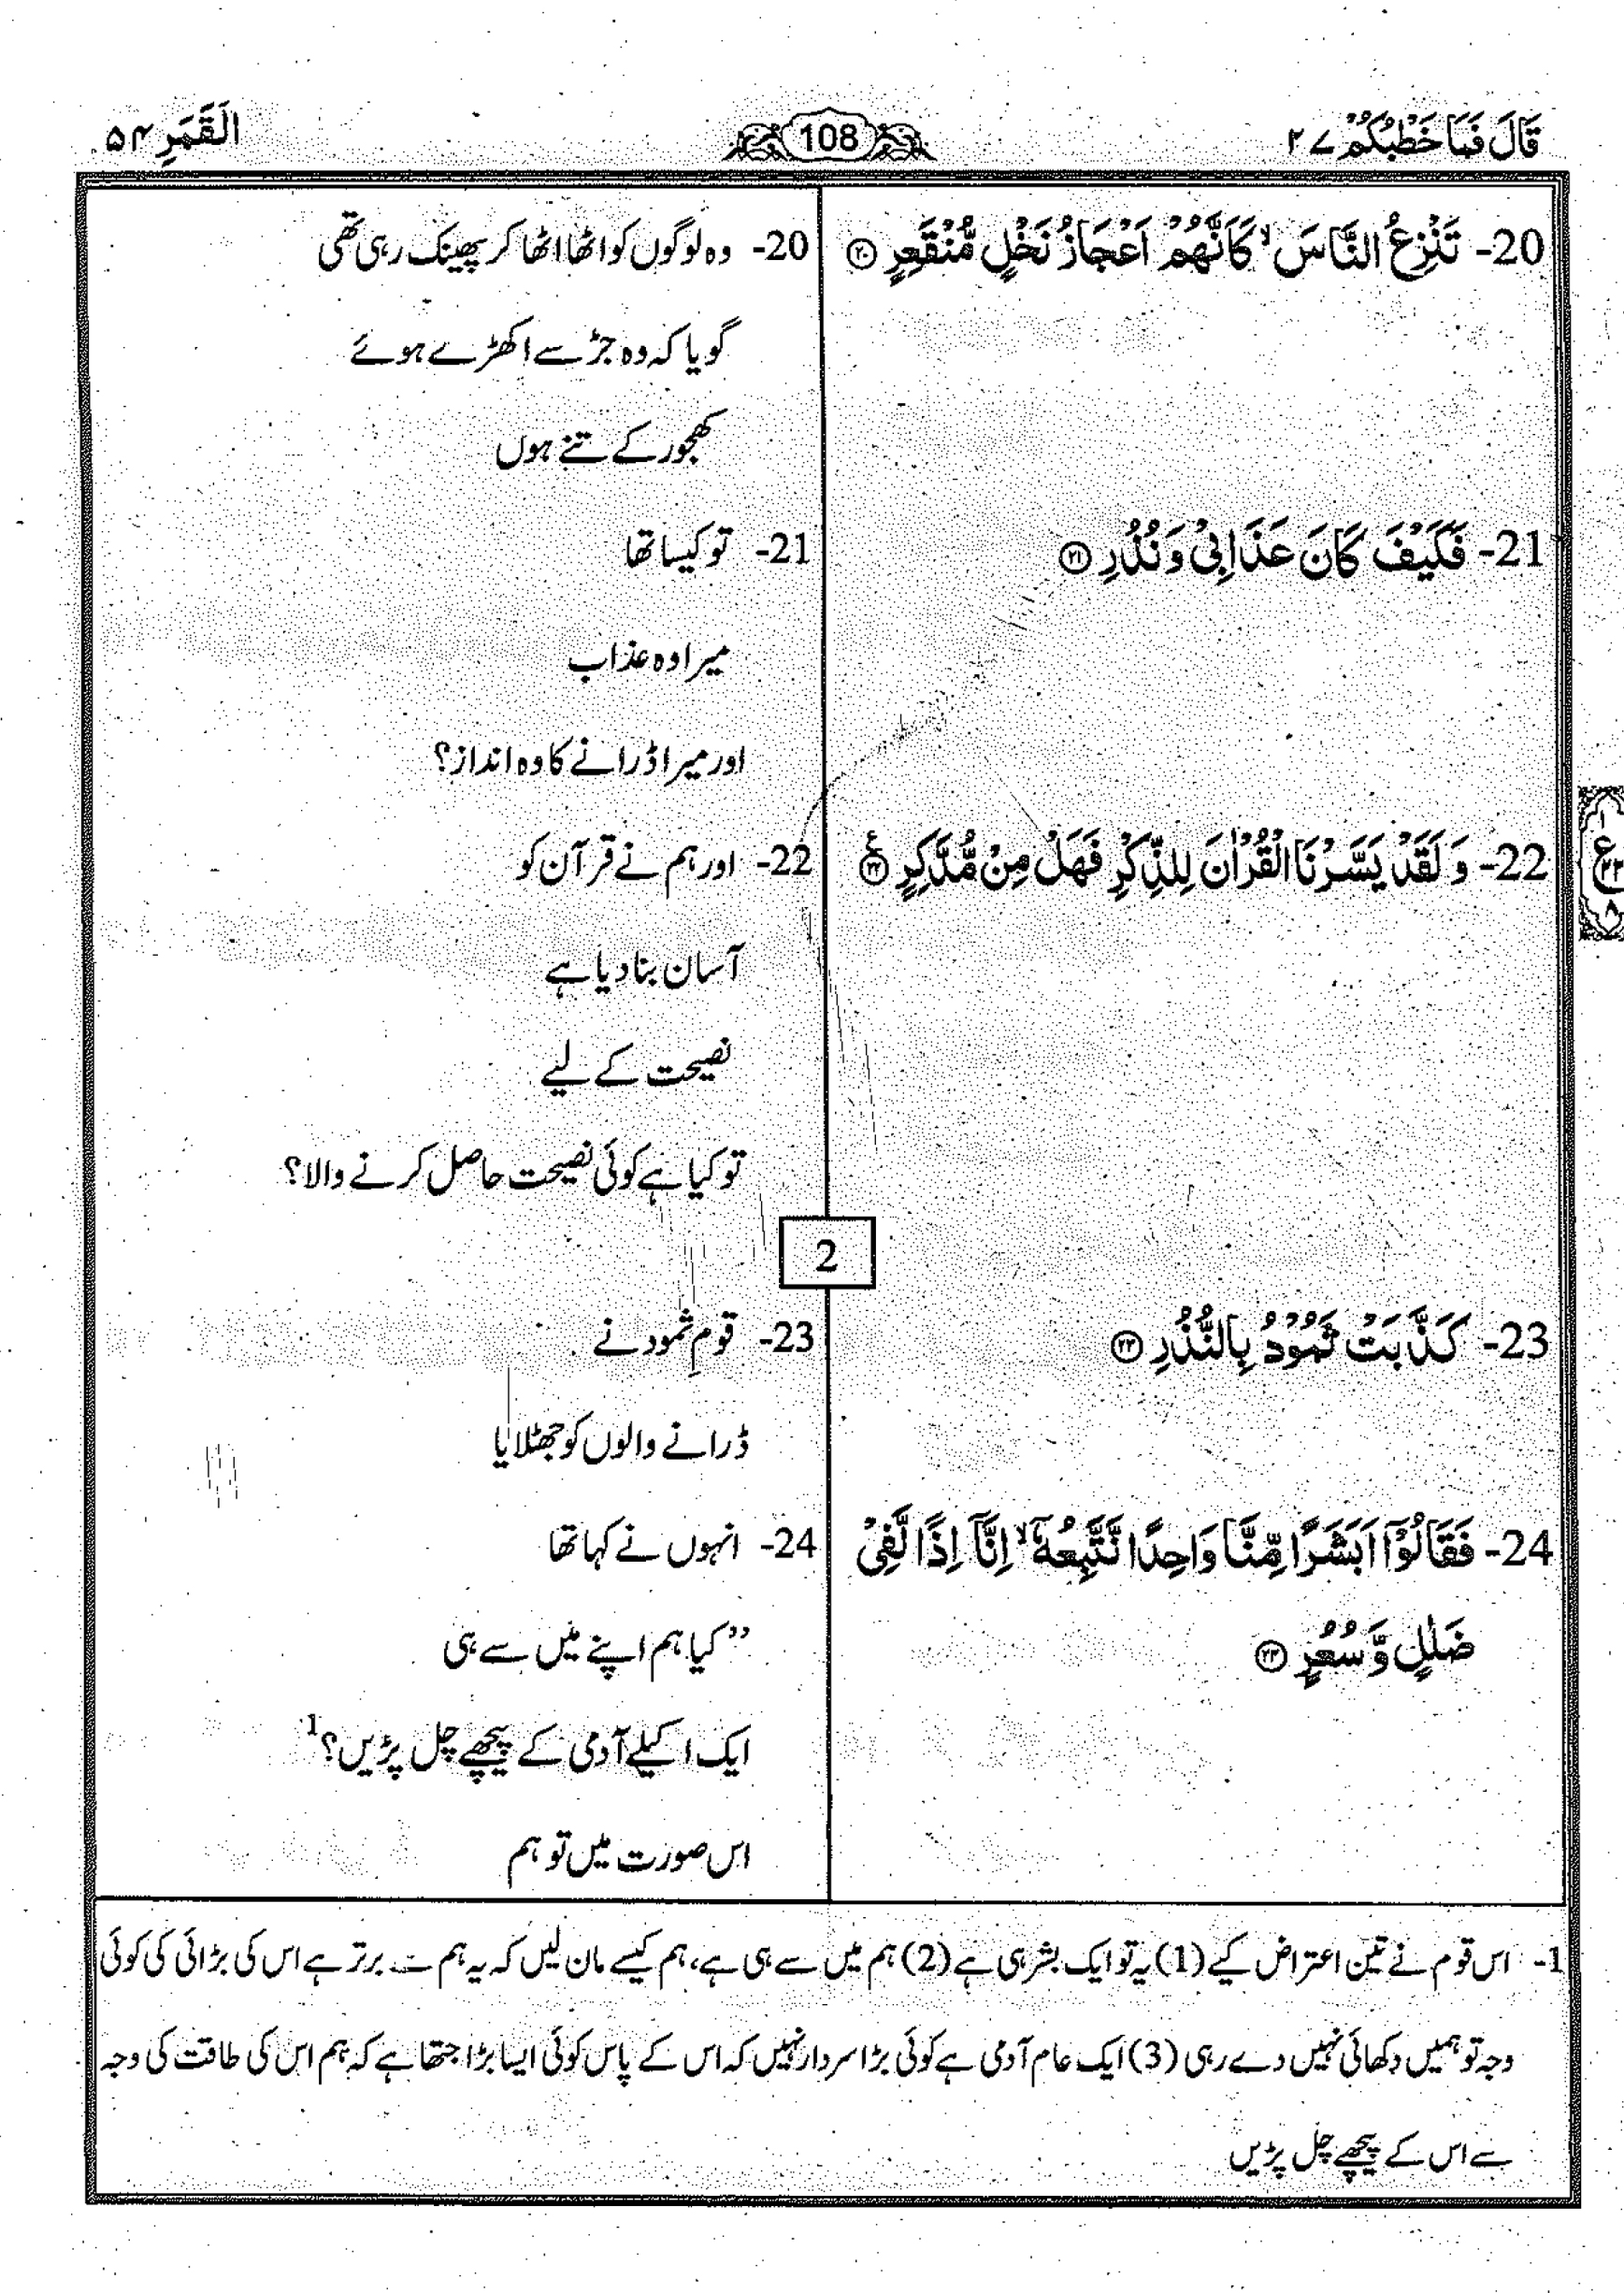 قَالَ فَمَا خَطْبُكُمْ ۲۷
108
اَلْقَمَرِ ۵۴
20- تَنْزِعُ النَّاسَ ۙ كَاَنَّهُمْ اَعْجَازُ نَخْلٍ مُّنْقَعِرٍ ۝۲۰
20- وہ لوگوں کو اٹھا اٹھا کر پھینک رہی تھی
گویا کہ وہ جڑ سے اکھڑے ہوئے
کھجور کے تنے ہوں
21- فَكَيْفَ كَانَ عَذَابِيْ وَ نُذُرِ ۝۲۱
21- تو کیسا تھا
میرا وہ عذاب
اور میرا ڈرانے کا وہ انداز؟
22- وَ لَقَدْ يَسَّرْنَا الْقُرْاٰنَ لِلذِّكْرِ فَهَلْ مِنْ مُّدَّكِرٍ ۝۲۲ ع
22- اور ہم نے قرآن کو
آسان بنا دیا ہے
نصیحت کے لیے
تو کیا ہے کوئی نصیحت حاصل کرنے والا؟
2
23- كَذَّبَتْ ثَمُوْدُ بِالنُّذُرِ ۝۲۳
23- قومِ ثمود نے
ڈرانے والوں کو جھٹلایا
24- فَقَالُوْٓا اَبَشَرًا مِّنَّا وَاحِدًا نَّتَّبِعُهٗٓ ۙ اِنَّآ اِذًا لَّفِيْ
ضَلٰلٍ وَّ سُعُرٍ ۝۲۴
24- انہوں نے کہا تھا
”کیا ہم اپنے میں سے ہی
ایک اکیلے آدمی کے پیچھے چل پڑیں؟1
اس صورت میں تو ہم
1- اس قوم نے تین اعتراض کیے (1) یہ تو ایک بشر ہی ہے (2) ہم میں سے ہی ہے، ہم کیسے مان لیں کہ یہ ہم سے برتر ہے اس کی بڑائی کی کوئی
وجہ تو ہمیں دکھائی نہیں دے رہی (3) ایک عام آدمی ہے کوئی بڑا سردار نہیں کہ اس کے پاس کوئی ایسا بڑا جتھا ہے کہ ہم اس کی طاقت کی وجہ
سے اس کے پیچھے چل پڑیں